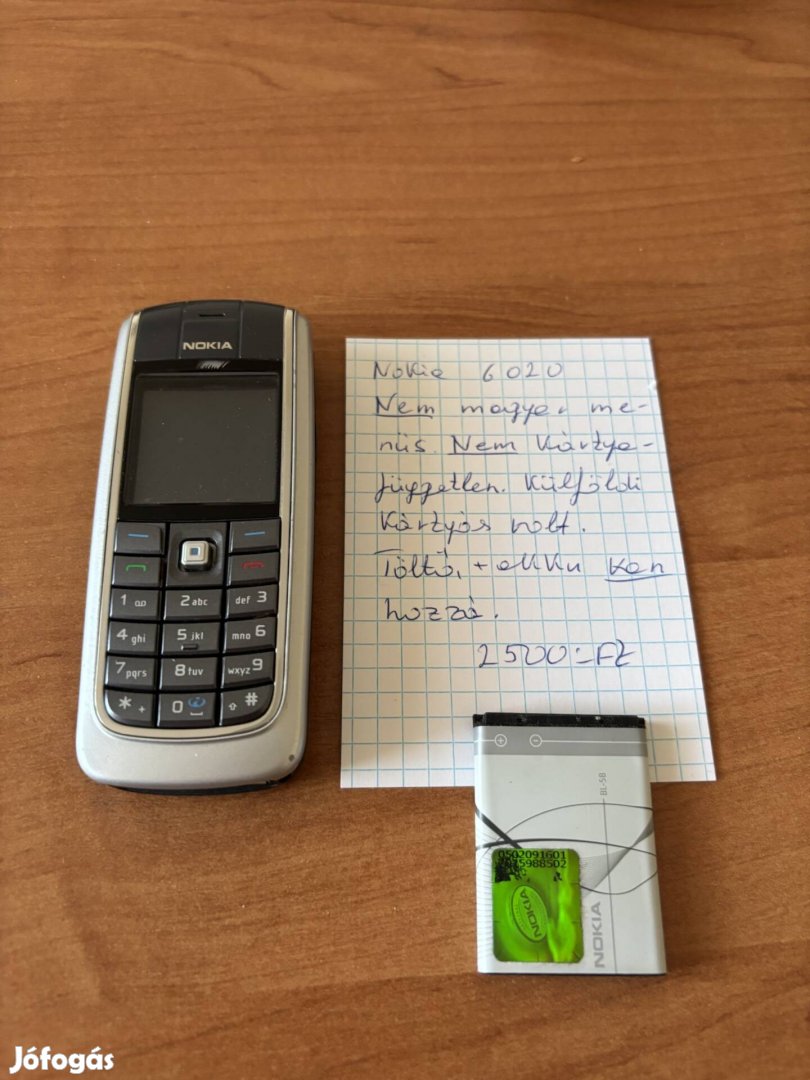 NOKIA
1
2 abc
def 3
4 ghi
5 jkl
mno 6
7 pqrs
8 tuv
wxyz 9
* +
0
#
Nokia 6020
Nem magyar me-
nüs. Nem kártya-
független. Külföldi
kártyás volt.
Töltő, + akku van
hozzá.
2500.-Ft
BL-5B
0502091601
NOKIA
NOKIA
Jófogás